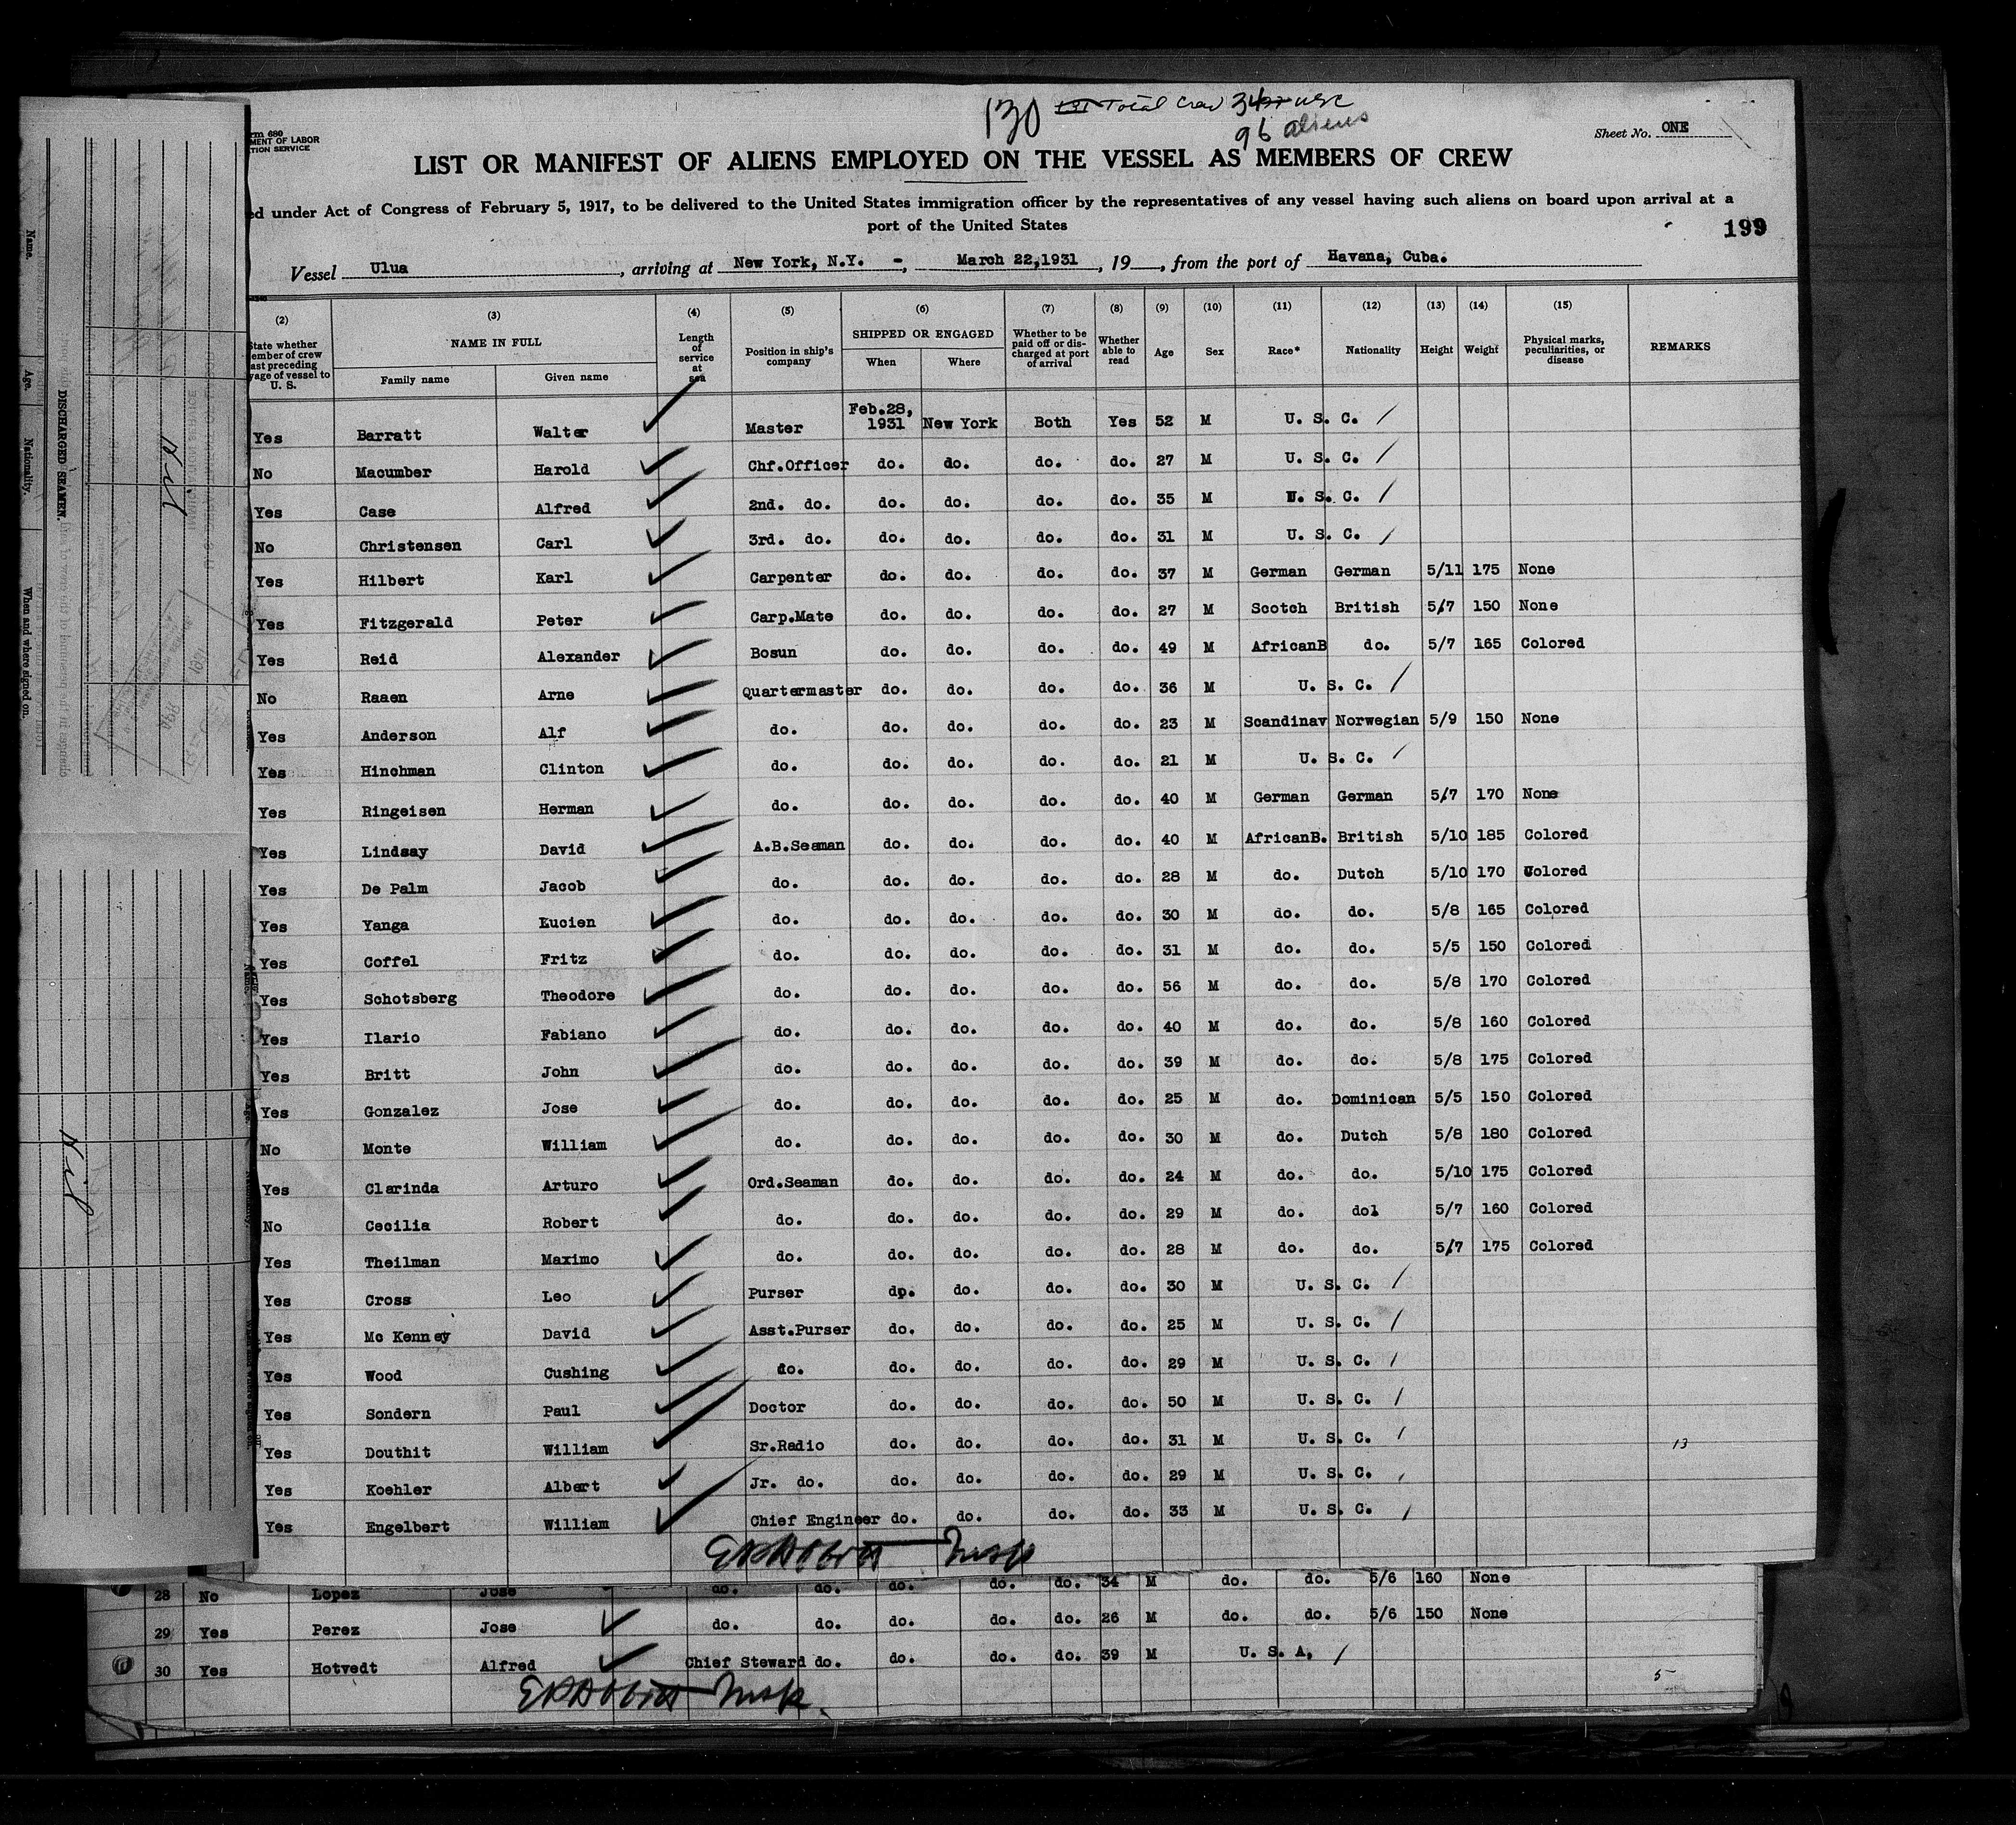 130 131 Total Crew 34 USC
96 aliens
rm 680
MENT OF LABOR
TION SERVICE
Sheet No. ONE
LIST OR MANIFEST OF ALIENS EMPLOYED ON THE VESSEL AS MEMBERS OF CREW
ed under Act of Congress of February 5, 1917, to be delivered to the United States immigration officer by the representatives of any vessel having such aliens on board upon arrival at a
port of the United States
199
Vessel Ulua, arriving at New York, N.Y. -, March 22,1931, 19, from the port of Havana, Cuba.
(2) (3) (4) (5) (6) (7) (8) (9) (10) (11) (12) (13) (14) (15)
State whether ember of crew ast preceding yage of vessel to U. S. NAME IN FULL Family name Given name Length of service at sea Position in ship's company SHIPPED OR ENGAGED When Where Whether to be paid off or discharged at port of arrival Whether able to read Age Sex Race* Nationality Height Weight Physical marks, peculiarities, or disease REMARKS
Yes Barratt Walter Master Feb.28, 1931 New York Both Yes 52 M U. S. C. /
No Macumber Harold Chf.Officer do. do. do. do. 27 M U. S. C. /
Yes Case Alfred 2nd. do. do. do. do. do. 35 M U. S. C. /
No Christensen Carl 3rd. do. do. do. do. do. 31 M U. S. C. /
Yes Hilbert Karl Carpenter do. do. do. do. 37 M German German 5/11 175 None
Yes Fitzgerald Peter Carp.Mate do. do. do. do. 27 M Scotch British 5/7 150 None
Yes Reid Alexander Bosun do. do. do. do. 49 M AfricanB do. 5/7 165 Colored
No Raaen Arne Quartermaster do. do. do. do. 36 M U. S. C. /
Yes Anderson Alf do. do. do. do. do. 23 M Scandinav Norwegian 5/9 150 None
Yes Hinchman Clinton do. do. do. do. do. 21 M U. S. C. /
Yes Ringeisen Herman do. do. do. do. do. 40 M German German 5/7 170 None
Yes Lindsay David A.B.Seaman do. do. do. do. 40 M AfricanB. British 5/10 185 Colored
Yes De Palm Jacob do. do. do. do. do. 28 M do. Dutch 5/10 170 Colored
Yes Yanga Eucien do. do. do. do. do. 30 M do. do. 5/8 165 Colored
Yes Coffel Fritz do. do. do. do. do. 31 M do. do. 5/5 150 Colored
Yes Schotsberg Theodore do. do. do. do. do. 56 M do. do. 5/8 170 Colored
Yes Ilario Fabiano do. do. do. do. do. 40 M do. do. 5/8 160 Colored
Yes Britt John do. do. do. do. do. 39 M do. do. 5/8 175 Colored
Yes Gonzalez Jose do. do. do. do. do. 25 M do. Dominican 5/5 150 Colored
No Monte William do. do. do. do. do. 30 M do. Dutch 5/8 180 Colored
Yes Clarinda Arturo Ord.Seaman do. do. do. do. 24 M do. do. 5/10 175 Colored
No Cecilia Robert do. do. do. do. do. 29 M do. do1 5/7 160 Colored
Yes Theilman Maximo do. do. do. do. do. 28 M do. do. 5/7 175 Colored
Yes Cross Leo Purser dp. do. do. do. 30 M U. S. C. /
Yes Mc Kenney David Asst.Purser do. do. do. do. 25 M U. S. C. /
Yes Wood Cushing do. do. do. do. do. 29 M U. S. C. /
Yes Sondern Paul Doctor do. do. do. do. 50 M U. S. C. /
Yes Douthit William Sr.Radio do. do. do. do. 31 M U. S. C. / 13
Yes Koehler Albert Jr. do. do. do. do. do. 29 M U. S. C. /
Yes Engelbert William Chief Engineer do. do. do. do. 33 M U. S. C. /
Insp
28 No Lopez Jose do. do. do. do. do. 34 M do. do. 5/6 160 None
29 Yes Perez Jose do. do. do. do. do. 26 M do. do. 5/6 150 None
30 Yes Hotvedt Alfred Chief Steward do. do. do. do. 39 M U. S. A, /
5
Insp.
Name.
Age.
Nationality.
When and where signed on.
DISCHARGED SEAMEN.
Nil
Nil